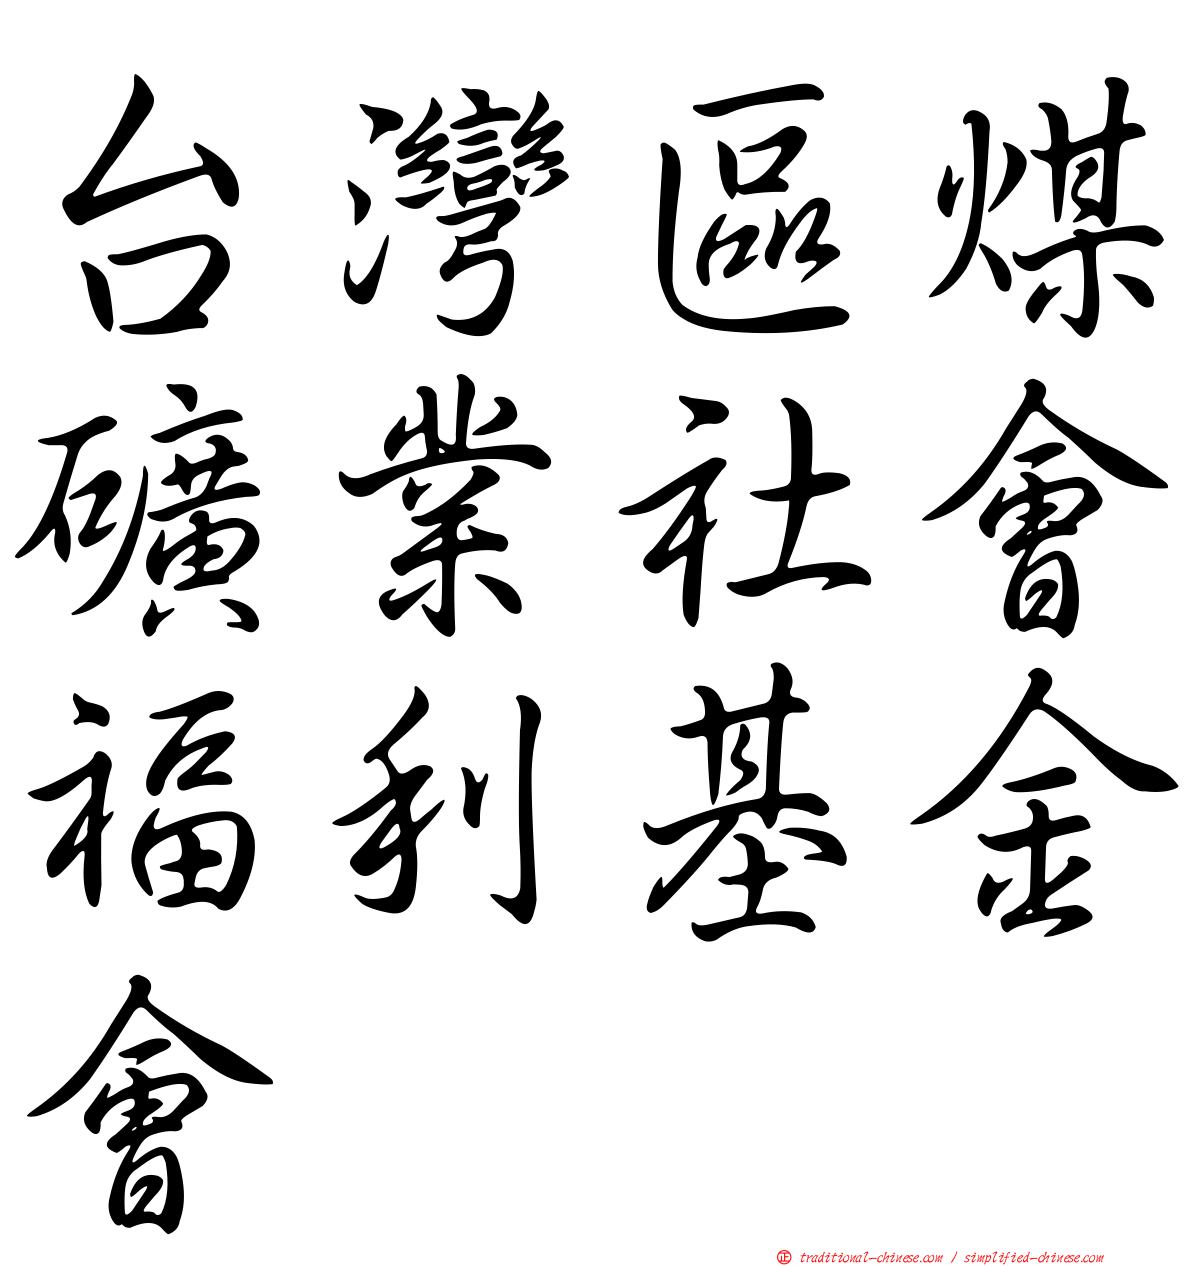 台灣區煤
礦業社會
福利基金
會
㊣ traditional-chinese.com / simplified-chinese.com